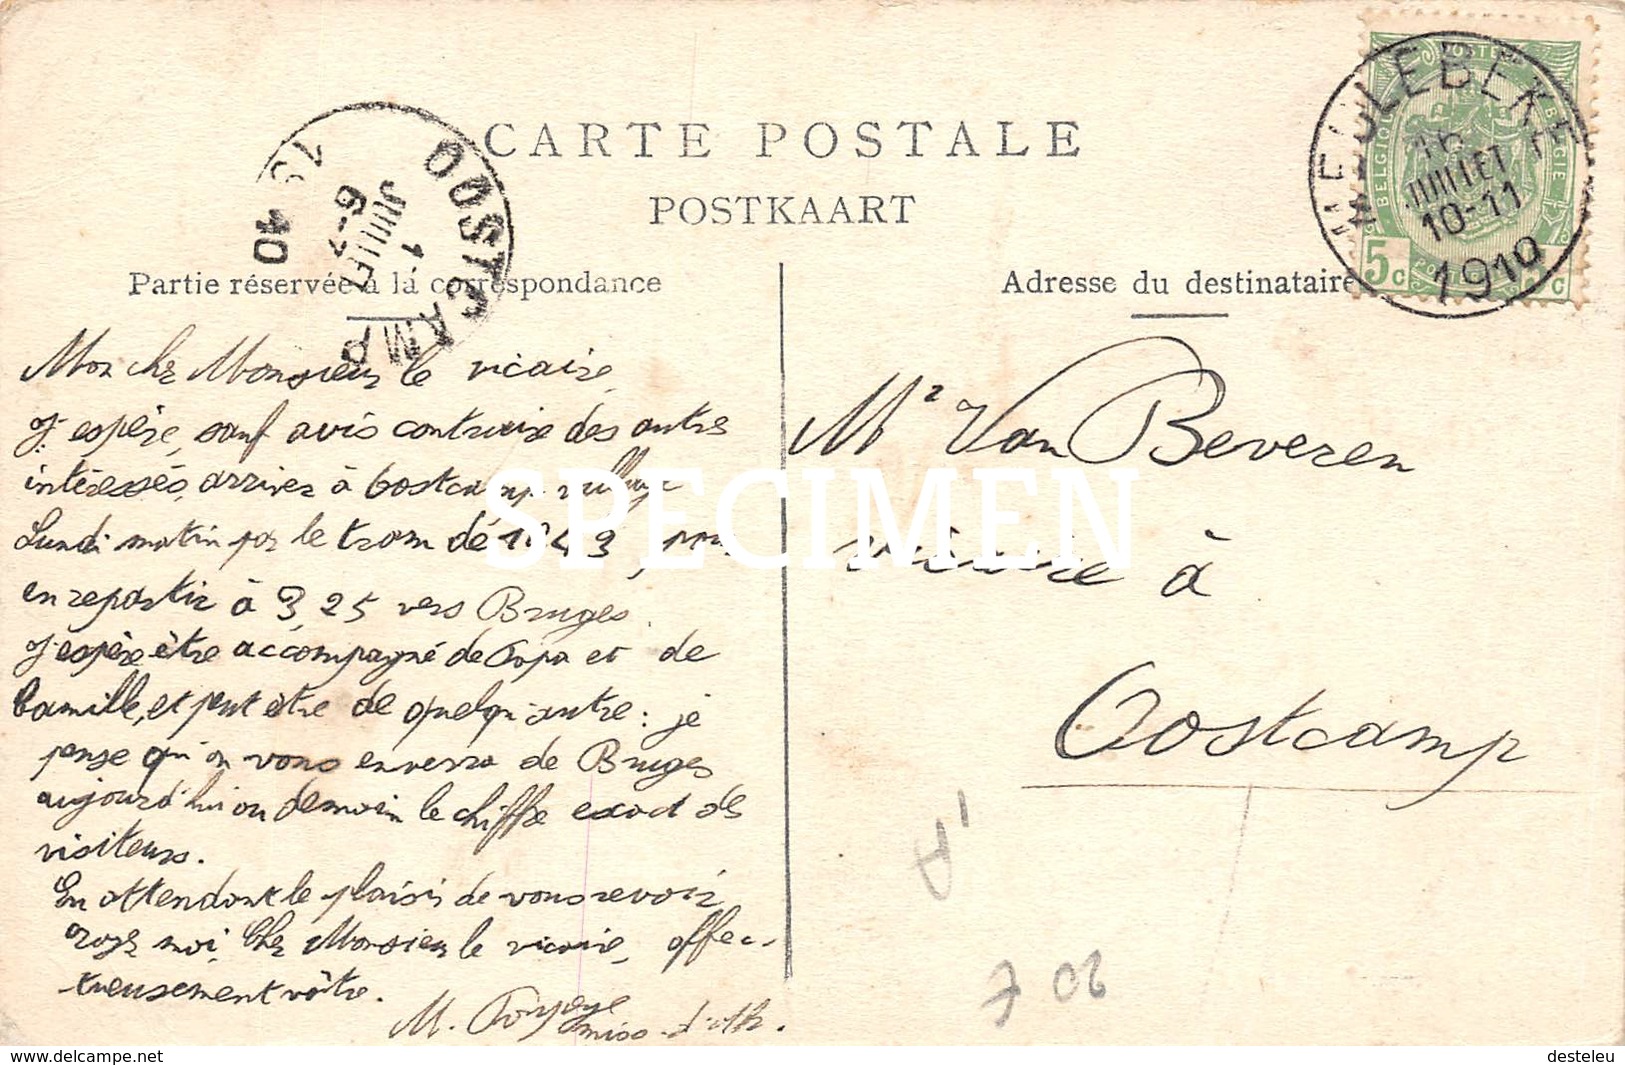 CARTE POSTALE
POSTKAART
Partie réservée à lá correspondance
Adresse du destinataire
MEULEBEKE
16
JUILLET
10-11
1910
BELGIQUE
POSTES
BELGIE
5c
OOSTCAMP
JUILLET
6-7
10
Mon cher Monsieur le vicaire,
J'espère, sauf avis contraire des autres
intéressés, arriver à Oostcamp village
Lundi matin par le tram de 10 43, pour
en repartir à 3,25 vers Bruges.
J'espère être accompagné de Papa et de
Camille, et peut être de quelqu'autre: je
pense qu'on vous enverra de Bruges
aujourd'hui ou demain le chiffre exact des
visiteurs.
En attendant le plaisir de vous revoir
croyez moi, Cher Monsieur le vicaire, affec-
tueusement vôtre.
M.
Mr Van Beveren
vicaire à
Oostcamp
SPECIMEN
www.delcampe.net
desteleu